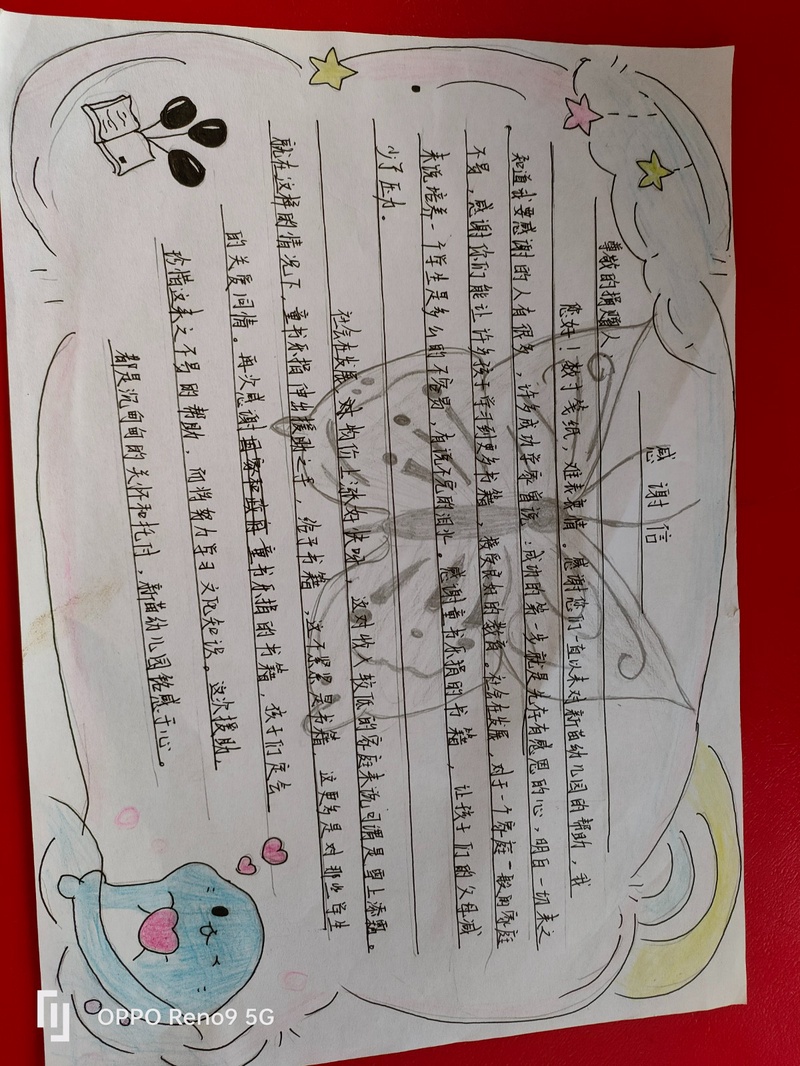 感谢信
尊敬的捐赠人
您好！数寸笺纸，难表衷情。感谢您们一直以来对新苗幼儿园的帮助，我
知道我要感谢的人有很多，许多成功学家曾说：成功的第一步就是先存有感恩的心，明白一切来之
不易，感谢你们能让许多孩子学习到更多书籍，接受良好的教育。社会在发展，对于一个家庭一般的家庭
来说培养一个学生是多么的不容易，有说不完的泪水。感谢童书乐捐的书籍，让孩子们的父母减
少了压力。
社会在发展，对物价上涨好快呀，这对收入较低的家庭来说可谓是雪上添霜。
就在这样的情况下，童书乐捐伸出援助之手，给予书籍，这不仅仅是书籍，这更多是对那些学生
的关爱同情。再次感谢童书乐捐的书籍，孩子们定会
珍惜这来之不易的帮助，而将努力学习文化知识。这次援助，
都是沉甸甸的关怀和托付，新苗幼儿园铭感于心。
OPPO Reno9 5G